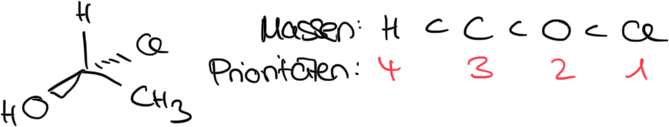 H
Cl
HO
CH3
Massen: H < C < O < Cl
Prioritäten: 4 3 2 1